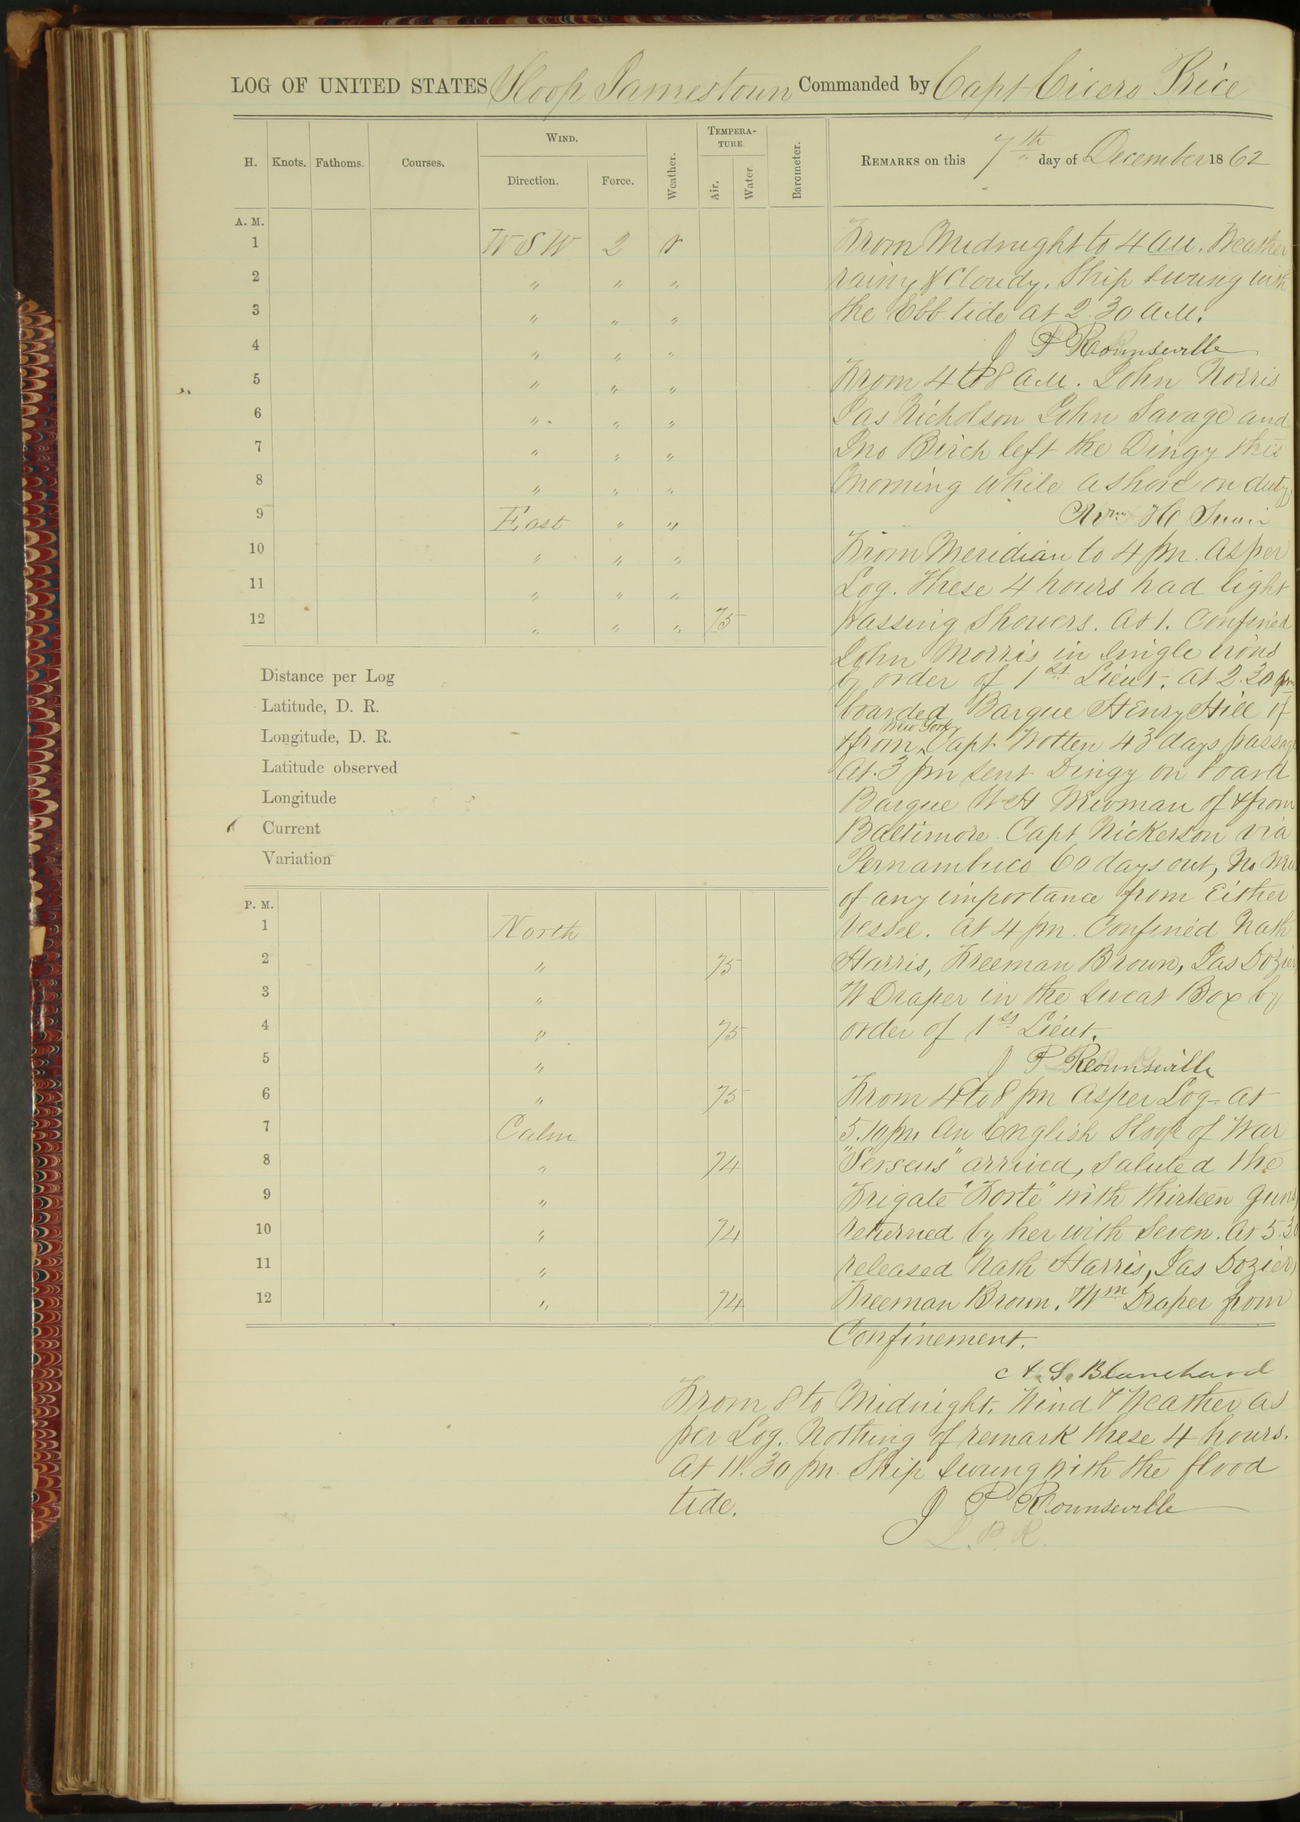 LOG OF UNITED STATES Sloop Jamestown Commanded by Capt Cicero Price
H. Knots. Fathoms. Courses. WIND. Direction. Force. Weather. TEMPERATURE. Air. Water Barometer. REMARKS on this 7th day of December 1862
A. M.
1 WSW 2 r
2 " " "
3 " " "
4 " " "
5 " " "
6 " " "
7 " " "
8 " " "
9 East " "
10 " " "
11 " " "
12 " " " 75
Distance per Log
Latitude, D. R.
Longitude, D. R.
Latitude observed
Longitude
Current
Variation
P. M.
1 North
2 " 75
3 "
4 " 75
5 "
6 " 75
7 Calm
8 " 74
9 "
10 " 74
11 "
12 " 74
From Midnight to 4 AM. Weather
rainy & Cloudy. Ship swung with
the Ebb tide at 2.30 AM.
J P Rounseville
From 4 to 8 AM. John Norris
Jas Nicholson John Savage and
Jno Birch left the Dingy this
morning while ashore on duty.
Wm H
From Meridian to 4 pm. As per
Log. These 4 hours had light
passing Showers. At 1. Confined
John Morris in single irons
by order of 1st Lieut. At 2.30 pm
boarded Barque Henry Hill of
& from New York Capt Notten 43 days passage
At. 3 pm sent Dingy on board
Barque W H Newman of & from
Baltimore Capt Nickerson via
Pernambuco 60 days out, No News
of any importance from Either
Vessel. At 4 pm. Confined Nath
Harris, Freeman Brown, Jas Dozier
W Draper in the sweat Box by
order of 1st Lieut.
J P Rounseville
From 4 to 8 pm As per Log - At
5.10 pm An English Sloop of War
"Perseus" arrived, saluted the
Frigate "Forte" with thirteen guns
returned by her with Seven. At 5.30
released Nath Harris, Jas Dozier,
Freeman Brown. Wm Draper from
Confinement.
A. G. Blanchard
From 8 to Midnight. Wind & Weather as
per Log. Nothing of remark these 4 hours.
At 11.30 pm Ship swung with the flood
tide. J P Rounseville
J. P. R.